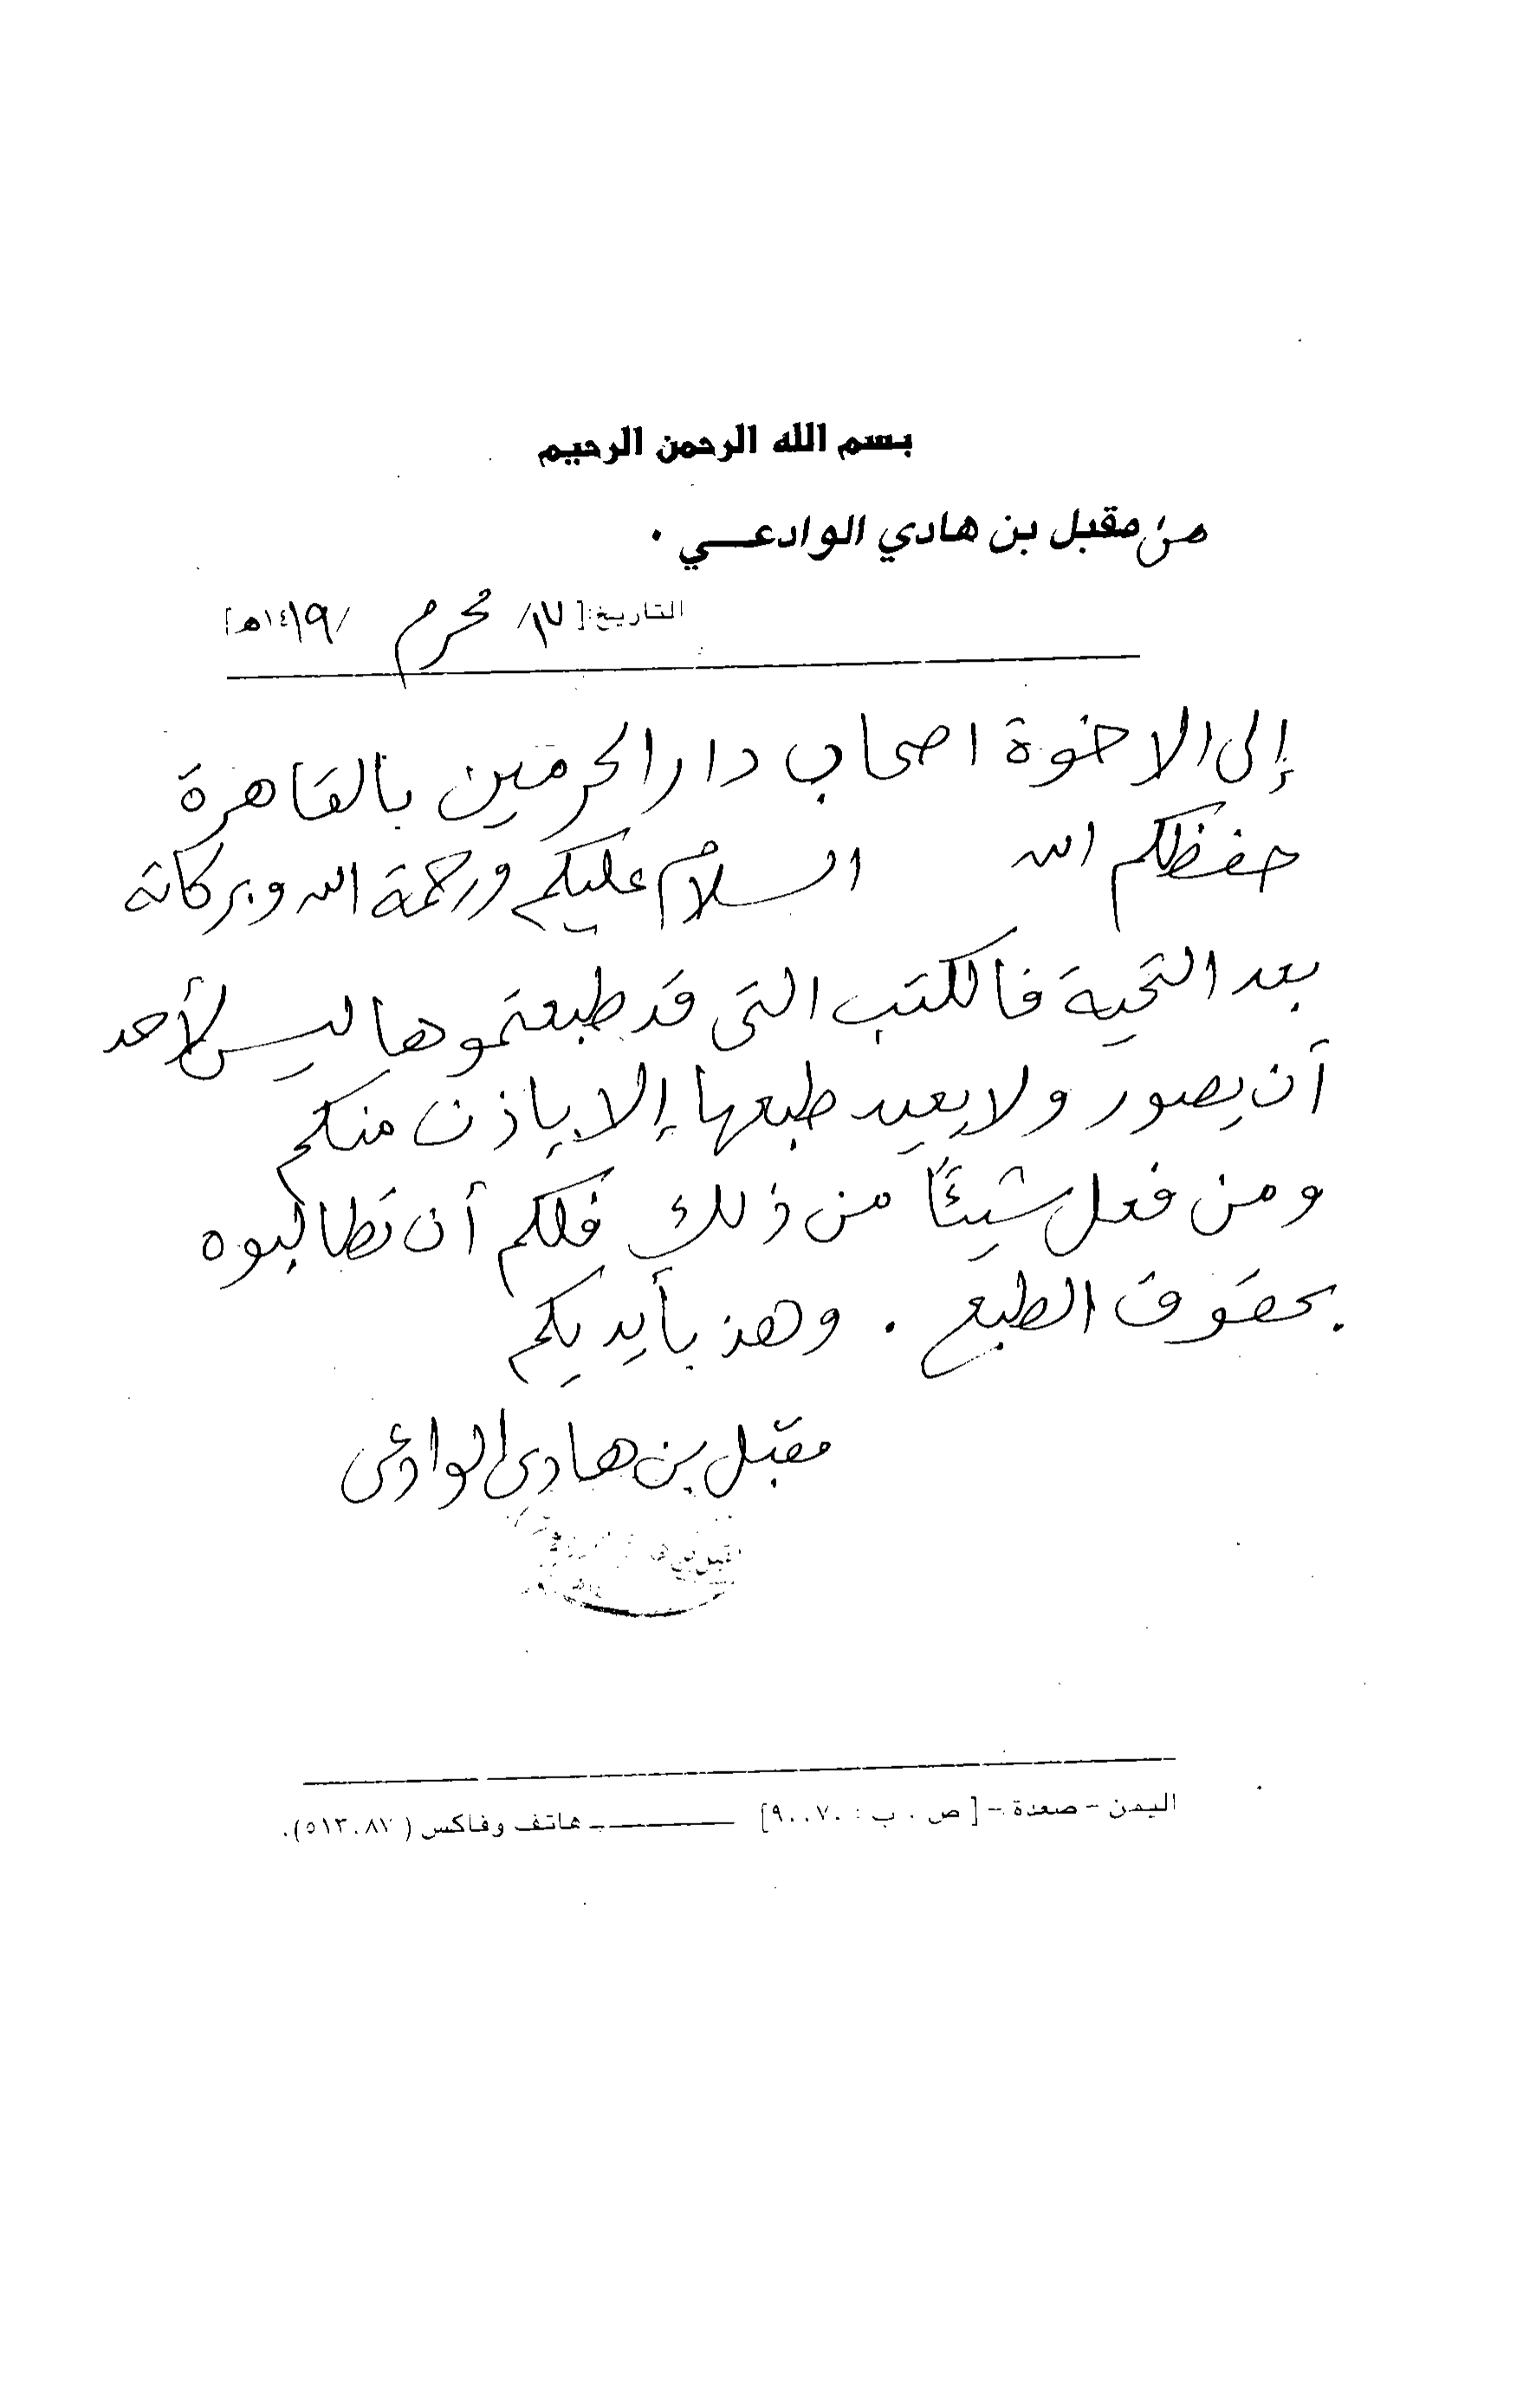 بسم الله الرحمن الرحيم
من مقبل بن هادي الوادعي .
التاريخ: [١٧/ محرم /١٤١٩هـ]
إلى الاخوة اصحاب دار الحرمين بالقاهرة
حفظكم الله السلام عليكم ورحمة الله وبركاته
بعد التحية فالكتب التى قد طبعتموها ليس لأحد
أن يصور ولا يعيد طبعها إلا بإذن منكم
ومن فعل شيئًا من ذلك فلكم أن تطالبوه
بحقوق الطبع . وهذ بأيديكم
مقبل بن هادي الوادعى
اليمن - صعدة - [ص . ب : ٩٠٠٧٠] ــ هاتف وفاكس (٥١٣٠٨٧).